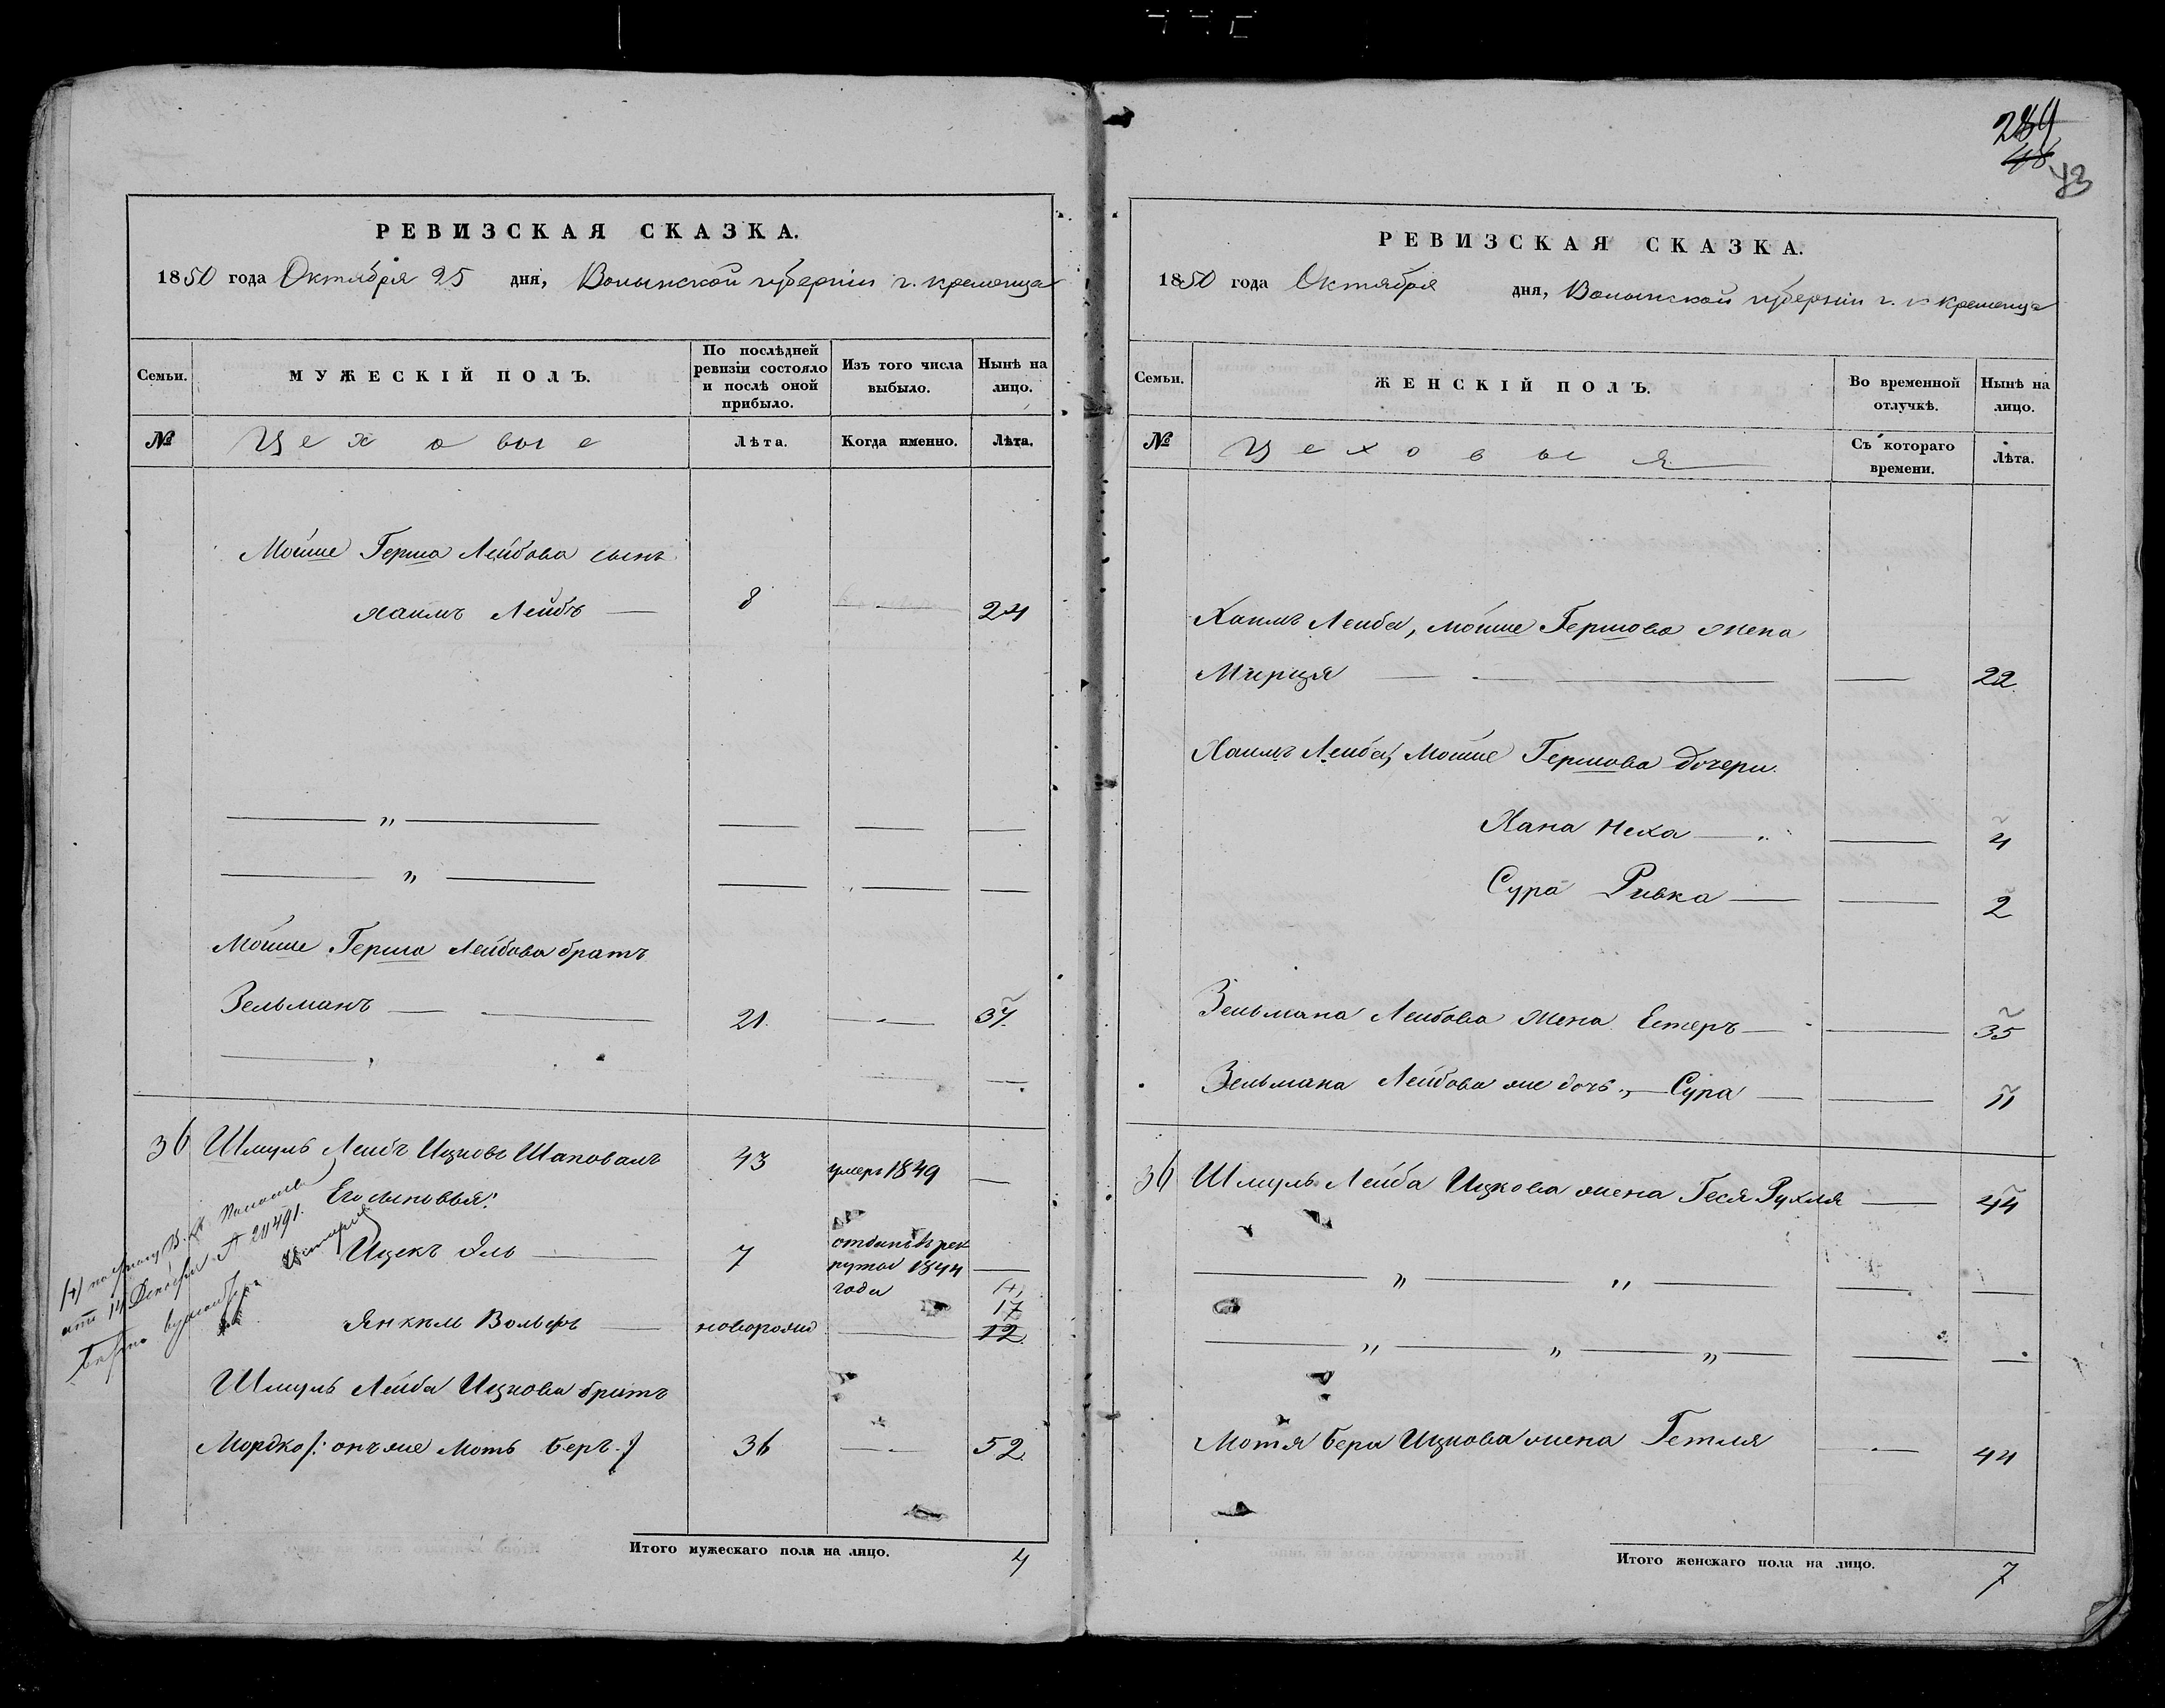 РЕВИЗСКАЯ СКАЗКА.
1850 года Октября 25 дня, Волынской губерніи г. Кременца
Семьи.
МУЖЕСКІЙ ПОЛЪ.
По послѣдней ревизіи состояло и послѣ оной прибыло.
Изъ того числа выбыло.
Нынѣ на лицо.
№
Цеховые
Лѣта.
Когда именно.
Лѣта.
Мойше Герша Лейбова сынъ
Хаимъ Лейбъ — 8 — 24
— " —
— " —
Мойше Герша Лейбова братъ
Зельманъ — 21. — 37.
36 Шмуль Лейбъ Ицковъ Шаповалъ 43 умеръ 1849 —
Его сыновья:
Ицекъ Эль — 7 отданъ въ рек
руты 1844 —
года
(+)
17
Янкель Вольфъ — новорожд — 12
Шмуль Лейба Ицкова братъ
Мордко /: онъ же Моть Беръ :/ 36 — 52.
(+) по указу В. К. Палаты
отъ 14 Декабря № 20491.
Итого мужескаго пола на лицо. 4
289
48
43
РЕВИЗСКАЯ СКАЗКА.
1850 года Октября дня, Волынской губерніи г. Кременца
Семьи.
ЖЕНСКІЙ ПОЛЪ.
Во временной отлучкѣ.
Нынѣ на лицо.
№
Цеховыя
Съ котораго времени.
Лѣта.
Хаимъ Лейба, Мойше Гершова жена
Мирця — — 22.
Хаимъ Лейба, Мойше Гершова дочери.
Хана Неха — — 4
Сура Ривка — — 2
Зельмана Лейбова жена Естеръ — — 35
Зельмана Лейбова же дочь, — Сура — — 11
36 Шмуль Лейба Ицкова жена Геся Рухля — 44
— " — " —
— " — " — " —
Мотя Бера Ицкова жена Гетля — 44
Итого женскаго пола на лицо. 7